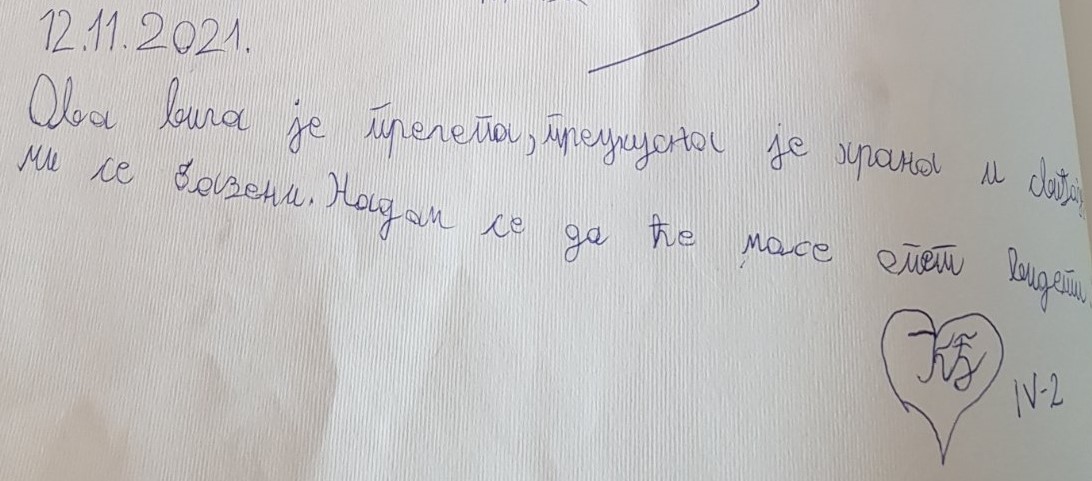 12.11.2021.
Ова вила је прелепа, преукусна је храна и свиђа
ми се базени. Надам се да ће масе опет видети
IV-2